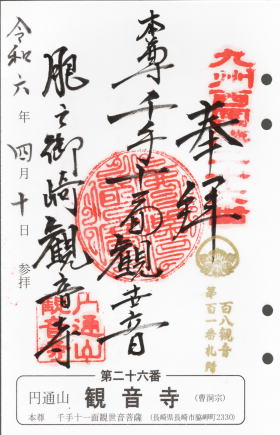 九州西国
奉拝
百八観音
第百一番札所
本尊千手十一面観世音
肥之御崎観音寺
円通山
観音寺
令和六年四月十日参拝
第二十六番
円通山 観音寺 (曹洞宗)
本尊 千手十一面観世音菩薩 (長崎県長崎市脇岬町2330)